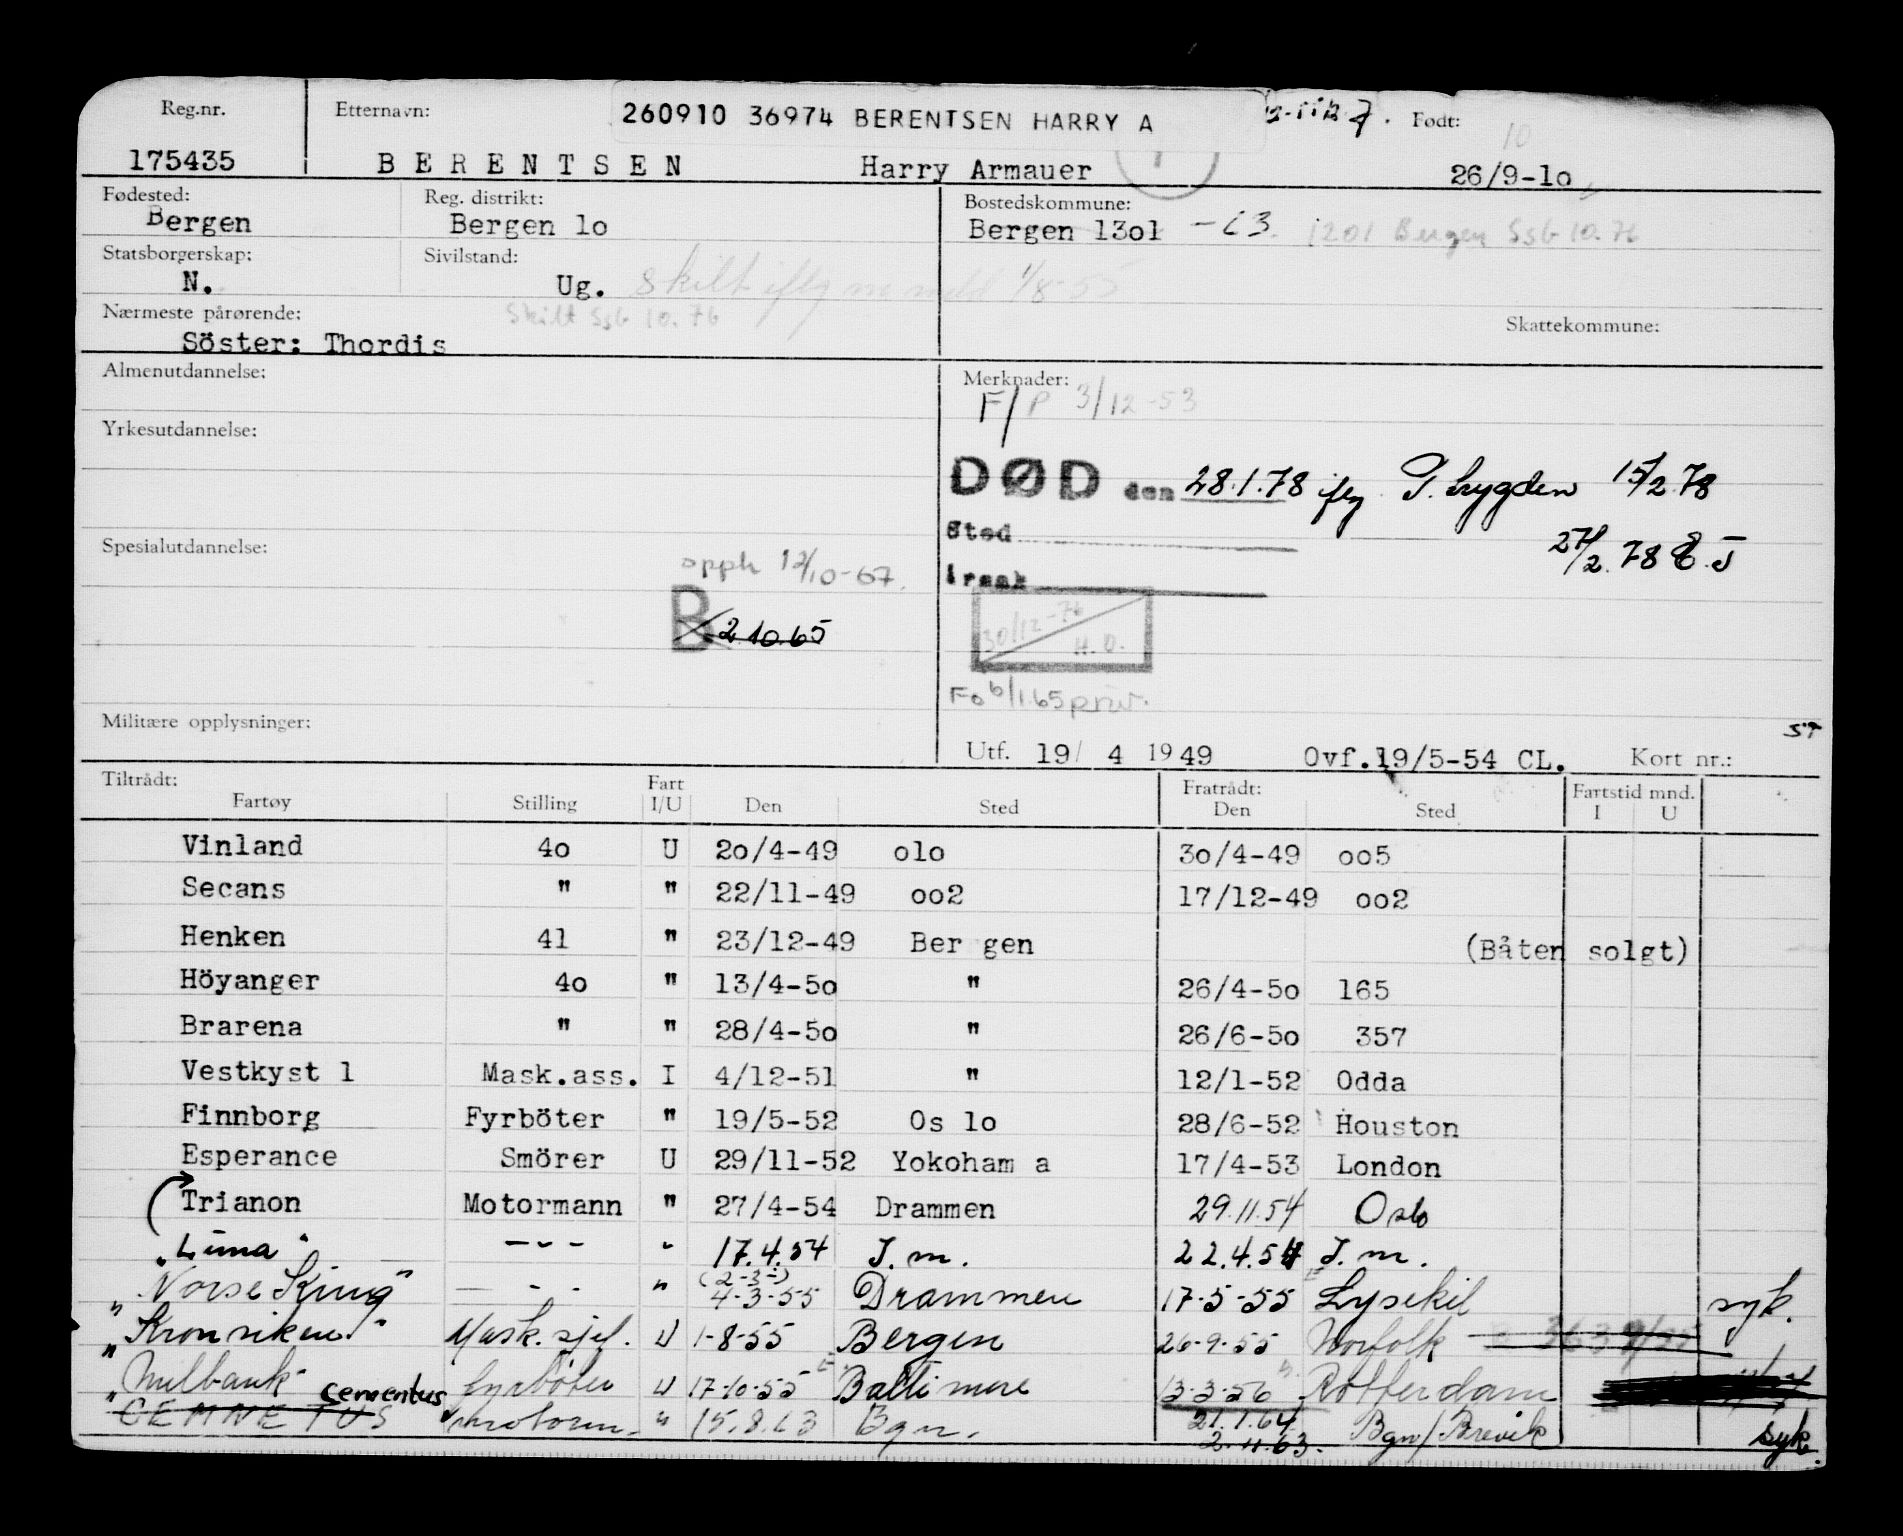 Reg.nr. Etternavn: 260910 36974 BERENTSEN HARRY A Født: 10
175435 BERENTSEN Harry Armauer 26/9-1o
Fødested: Reg. distrikt: Bostedskommune:
Bergen Bergen 1o Bergen 13o1 - 63. 1201 Bergen Ssb 10.76
Statsborgerskap: Sivilstand:
N. Ug. Skilt iflg 1/8-55
Nærmeste pårørende: Skilt Ssb 10.76 Skattekommune:
Söster: Thordis
Almenutdannelse: Merknader:
F/P 3/12-53
Yrkesutdannelse:
DØD den 28.1.78 iflg T. Lygden 15/2.78
Sted 27/2.78
Spesialutdannelse: årsak
opph 12/10-67.
B 2.10.65 30/12-76 H.O.
Fo 6/1.65 priv.
Militære opplysninger:
Utf. 19/ 4 1949 Ovf.19/5-54 CL. Kort nr.:
Tiltrådt: Fart Fratrådt: Fartstid mnd.
Fartøy Stilling I/U Den Sted Den Sted I U
Vinland 4o U 2o/4-49 o1o 3o/4-49 oo5
Secans " " 22/11-49 oo2 17/12-49 oo2
Henken 41 " 23/12-49 Ber gen (Båten solgt)
Höyanger 4o " 13/4-5o " 26/4-5o 165
Brarena " " 28/4-5o " 26/6-5o 357
Vestkyst 1 Mask.ass. I 4/12-51 " 12/1-52 Odda
Finnborg Fyrböter " 19/5-52 Os lo 28/6-52 Houston
Esperance Smörer U 29/11-52 Yokoham a 17/4-53 London
Trianon Motormann " 27/4-54 Drammen 29.11.54 Oslo
"Luna" - - - " 17.4.54 T.m. 22.4.54 T.m.
(2-3-)
"Norse King" - - - " 4-3-55 Drammen 17-5-55 Lysekil syk.
"Kronviken" Mask.sjef. U 1-8-55 Bergen 26-9-55 Norfolk
"Milbank" fyrböter U 17-10-55 Baltimore 13-3-56 Rotterdam
cementus
CEMNETUS motorm. " 15.8.63 Bgn. 21.1.64 Bgn/Brevik
2.11.63. syk.